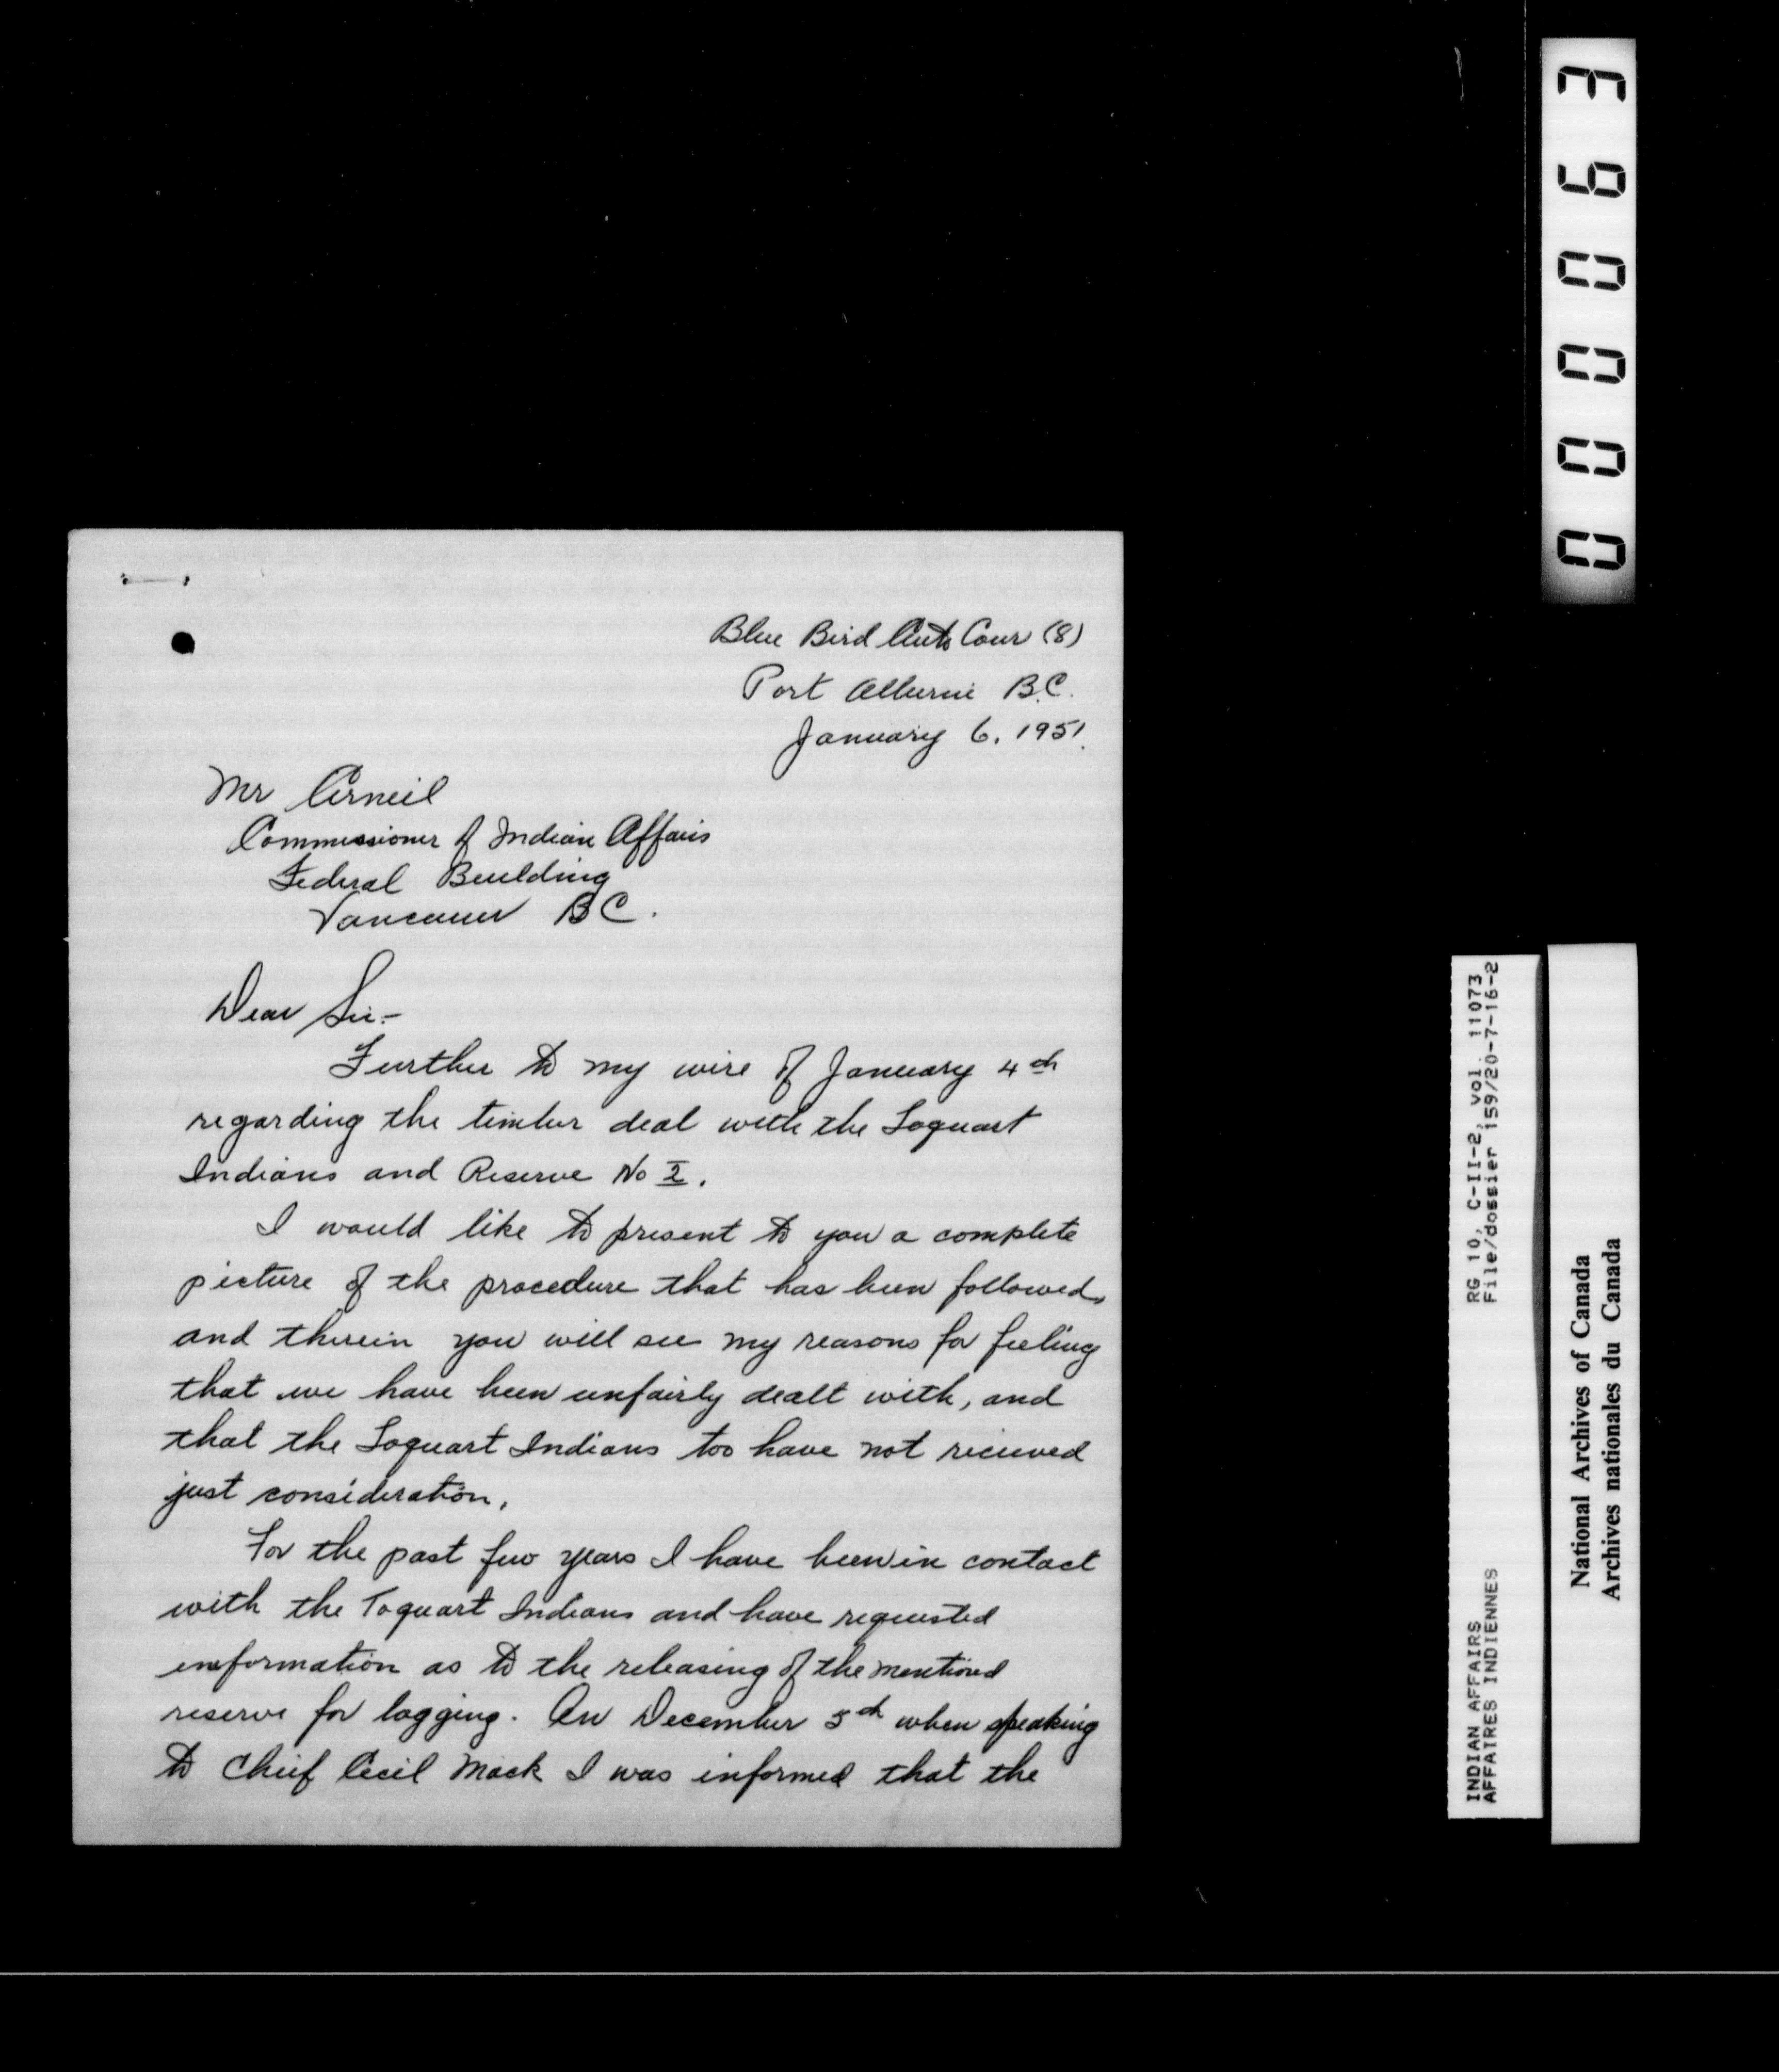 Blue Bird Auto Cour (8)
Port Alberni B.C.
January 6, 1951.
Mr Arneil
Commissioner of Indian Affairs
Federal Building
Vancouver BC.
Dear Sir:-
Further to my wire of January 4th
regarding the timber deal with the Toquart
Indians and Reserve No 2.
I would like to present to you a complete
picture of the procedure that has been followed,
and therein you will see my reasons for feeling
that we have been unfairly dealt with, and
that the Toquart Indians too have not recieved
just consideration.
For the past few years I have been in contact
with the Toquart Indians and have requested
information as to the releasing of the mentioned
reserve for logging. On December 5th when speaking
to Chief Cecil Mack I was informed that the
000063
RG 10, C-II-2, vol. 11073
File/dossier 159/20-7-16-2
INDIAN AFFAIRS
AFFAIRES INDIENNES
National Archives of Canada
Archives nationales du Canada